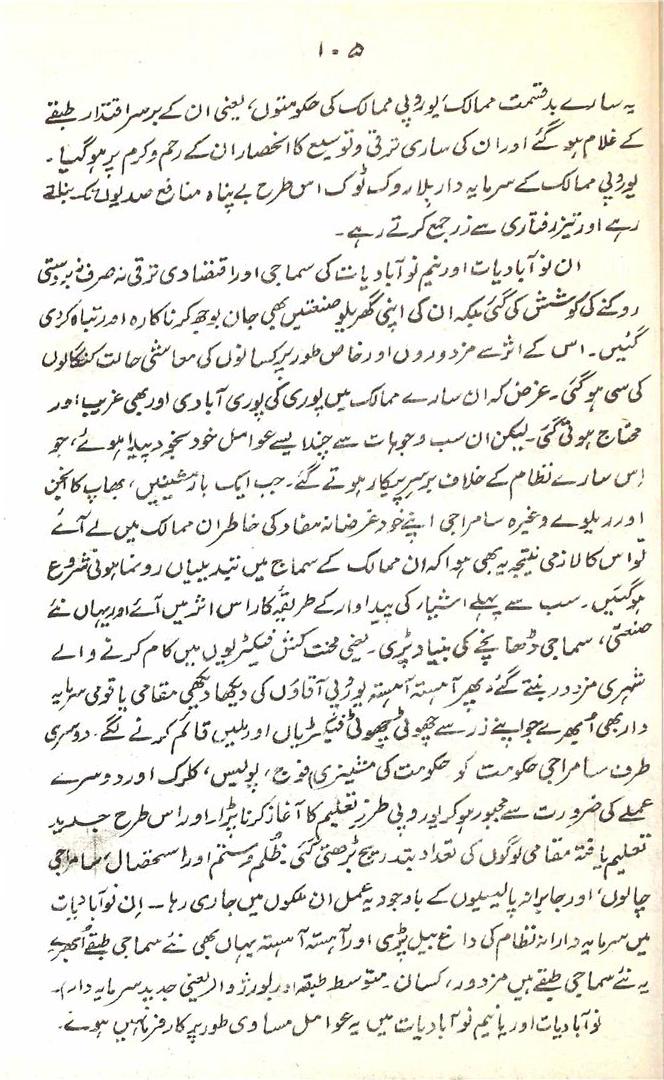 ۱۰۵
یہ سارے بدقسمت ممالک، یوروپی ممالک کی حکومتوں، یعنی ان کے برسراقتدار طبقے
کے غلام ہو گئے اور ان کی ساری ترقی و توسیع کا انحصار ان کے رحم و کرم پر ہو گیا۔
یوروپی ممالک کے سرمایہ دار بلا روک ٹوک اس طرح بے پناہ منافع صدیوں تک بناتے
رہے اور تیز رفتاری سے زر جمع کرتے رہے۔
ان نوآبادیات اور نیم نوآبادیات کی سماجی اور اقتصادی ترقی نہ صرف زبردستی
روکنے کی کوشش کی گئی بلکہ ان کی اپنی گھریلو صنعتیں بھی جان بوجھ کر ناکارہ اور تباہ کردی
گئیں۔ اس کے اثر سے مزدوروں اور خاص طور پر کسانوں کی معاشی حالت کنگالوں
کی سی ہو گئی۔ غرض کہ ان سارے ممالک میں پوری کی پوری آبادی اور بھی غریب اور
محتاج ہوتی گئی۔ لیکن ان سب وجوہات سے چند ایسے عوامل خود بخود پیدا ہوئے، جو
اس سارے نظام کے خلاف برسرپیکار ہوتے گئے۔ جب ایک بار مشینیں، بھاپ کا انجن
اور ریلوے وغیرہ سامراجی اپنے خود غرضانہ مفاد کی خاطر ان ممالک میں لے آئے
تو اس کا لازمی نتیجہ یہ بھی ہوا کہ ان ممالک کے سماج میں تبدیلیاں رونما ہونی شروع
ہو گئیں۔ سب سے پہلے اشیاء کی پیداوار کے طریقۂ کار اس اثر میں آئے اور یہاں نئے
صنعتی، سماجی ڈھانچے کی بنیاد پڑی۔ یعنی محنت کش فیکٹریوں میں کام کرنے والے
شہری مزدور بنتے گئے، پھر آہستہ آہستہ یوروپی آقاؤں کی دیکھا دیکھی مقامی یا قومی سرمایہ
دار بھی ابھرے جو اپنے زر سے چھوٹی چھوٹی فیکٹریاں اور ملیں قائم کرنے لگے۔ دوسری
طرف سامراجی حکومت کو حکومت کی مشینری، فوج، پولیس، کلرک اور دوسرے
عملے کی ضرورت سے مجبور ہو کر یوروپی طرز تعلیم کا آغاز کرنا پڑا، اور اس طرح جدید
تعلیم یافتہ مقامی لوگوں کی تعداد بتدریج بڑھتی گئی۔ ظُلم و ستم اور استحصال، سامراجی
چالوں، اور جابرانہ پالیسیوں کے باوجود یہ عمل ان ملکوں میں جاری رہا۔ اِن نوآبادیات
میں سرمایہ دارانہ نظام کی داغ بیل پڑی اور آہستہ آہستہ یہاں بھی نئے سماجی طبقے اُبھرے
یہ نئے سماجی طبقے ہیں مزدور، کسان۔ متوسط طبقہ اور بورژوا (یعنی جدید سرمایہ دار)۔
نوآبادیات اور یا نیم نوآبادیات میں یہ عوامل مساوی طور پر کارفرما نہیں ہوئے۔